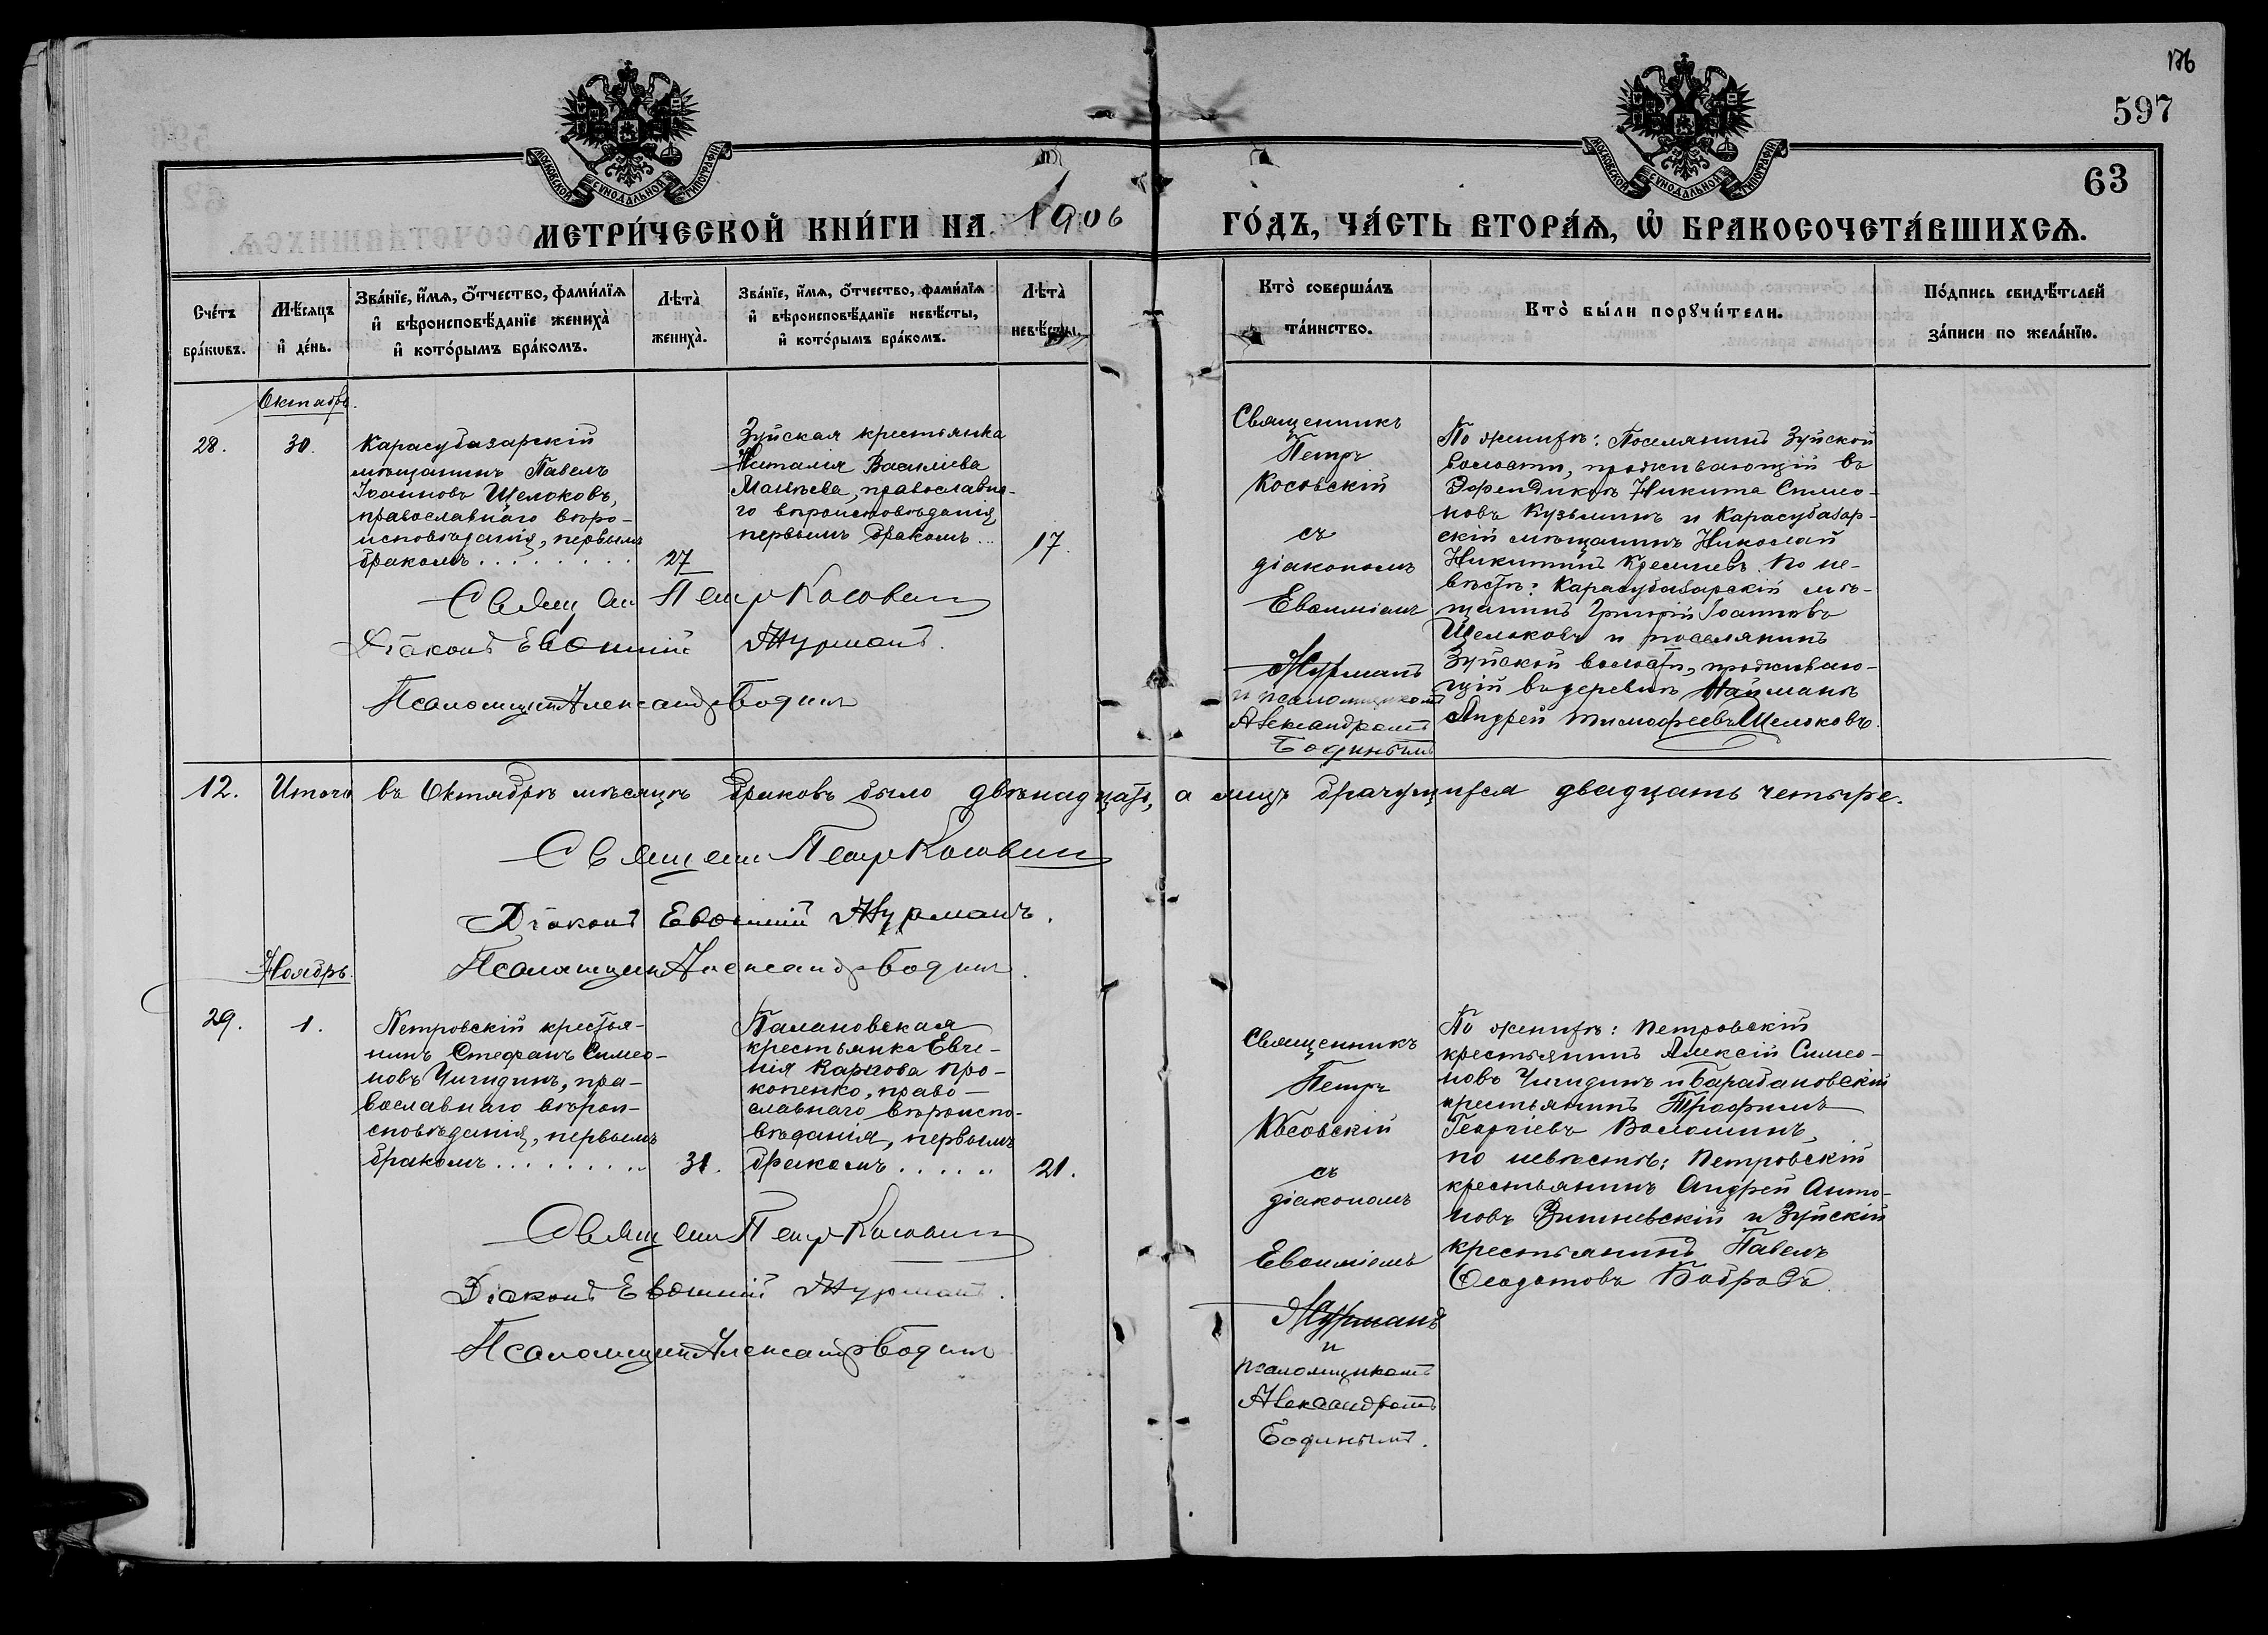 176
597
63
МОСКОВСКОЙ СУНОДАЛЬНОЙ ТИПОГРАФІИ
МОСКОВСКОЙ СУНОДАЛЬНОЙ ТИПОГРАФІИ
МЕТРИ́ЧЕСКОЙ КНИ́ГИ НА 1906 ГО́ДЪ, ЧА́СТЬ ВТОРА́Ѧ, Ѽ БРАКОСОЧЕТА́ВШИХСѦ.
Сче́тъ
бра́кѡвъ.
Мѣ́сѧцъ
и҆ де́нь.
Зва́нїе, и҆́мѧ, ѻ҆́тчество, фами́лїѧ
и҆ вѣроисповѣ́данїе жениха̀
и҆ кото́рымъ бра́комъ.
Лѣта̀
жениха̀.
Зва́нїе, и҆́мѧ, ѻ҆́тчество, фами́лїѧ
и҆ вѣроисповѣ́данїе невѣ́сты,
и҆ кото́рымъ бра́комъ.
Лѣта̀
невѣ́сты.
Кто̀ соверша́лъ
та́инство.
Кто̀ бы́ли порꙋчи́тели.
По́дпись свидѣ́телей
за́писи по жела́нїю.
Октябрь.
28.
30.
Карасубазарскій
мѣщанинъ Павелъ
Іоанновъ Щелоковъ,
православнаго вѣро-
исповѣданія, первымъ
бракомъ . . . . . . . .
27
Зуйская крестьянка
Наталія Василіева
православна-
го вѣроисповѣданія
первымъ бракомъ ...
17.
Священникъ
Петръ
Косовскій
съ
діакономъ
Евѳиміемъ
Журманъ
и псаломщикомъ
Александромъ
Бодинымъ
По женихѣ: Поселянинъ Зуйской
волости, проживающій въ
Эфендикоѣ Никита Симео-
новъ Кузьминъ и Карасубазар-
скій мѣщанинъ Николай
Никитинъ По не-
вѣстѣ: Карасубазарскій мѣ-
щанинъ Григорій Іоанновъ
Щелоковъ и поселянинъ
Зуйской волости, проживаю-
щій въ деревнѣ Найманъ
Андрей Тимофеевъ Щелоковъ.
Свящ Петръ Косовскій
Діаконъ Евѳимій Журманъ.
Псаломщикъ Александръ Бодинъ
12. Итого въ Октябрѣ мѣсяцѣ браковъ было двѣнадцать, а лицъ брачущихся двадцать четыре.
Священ Петръ Косовскій
Діаконъ Евѳимій Журманъ.
Псаломщикъ Александръ Бодинъ.
Ноябрь.
29.
1.
Петровскій крестья-
нинъ Стефанъ Симео-
новъ Чигидинъ, пра-
вославнаго вѣрои-
сповѣданія, первымъ
бракомъ . . . . . . . . .
31.
крестьянка Евге-
нія Карпова Про-
копенко, право-
славнаго вѣроиспо-
вѣданія, первымъ
бракомъ . . . . . .
21.
Священникъ
Петръ
Косовскій
съ
діакономъ
Евѳиміемъ
Журманъ
и
псаломщикомъ
Александромъ
Бодинымъ.
По женихѣ: Петровскій
крестьянинъ Алексій Симео-
новъ Чигидинъ и Барабановскій
крестьянинъ Трофимъ
Георгіевъ Волошинъ,
по невѣстѣ: Петровскій
крестьянинъ Андрей Анто-
новъ Вишневскій и Зуйскій
крестьянинъ Павелъ
Ѳеодотовъ Бобровъ.
Священ Петръ Косовскій
Діаконъ Евѳимій Журманъ.
Псаломщикъ Александръ Бодинъ